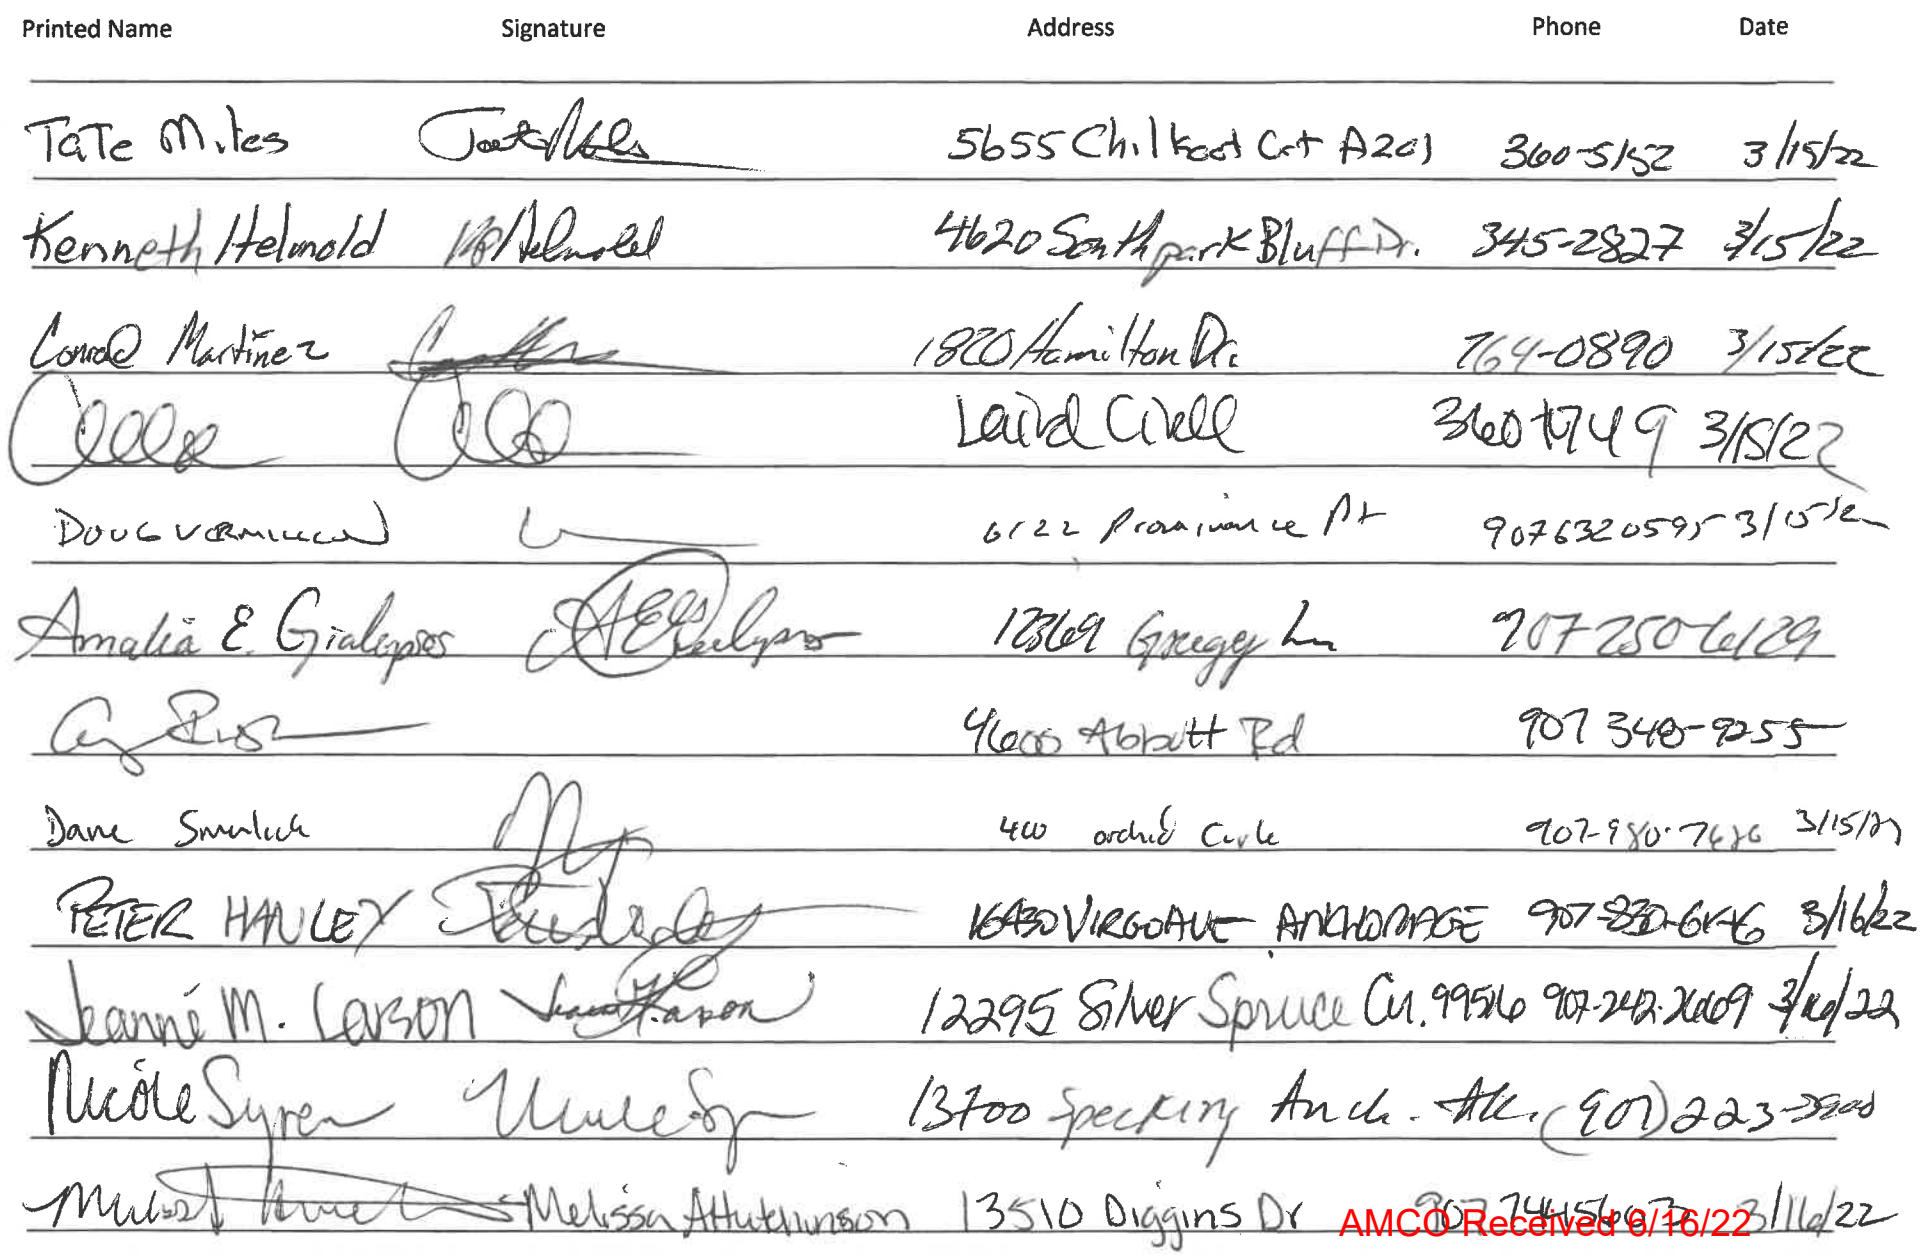 Printed Name Signature Address Phone Date
Tate Miles 5655 Chilkoot Crt A201 360-5152 3/15/22
Kenneth Helmold Helmold 4620 Southpark Bluff Dr. 345-2827 3/15/22
Conrad Martinez 1820 Hamilton Dr. 764-0890 3/15/22
Laird Circle 3/15/22
DOUG VERMILLION 6122 Prominence Pt 9076320595 3/15/22
Amalia E. Gialopsos Gregory Ln 907 250-6129
4600 Abbott Rd 907 348-9255
Dane Smulick 400 orchid Circle 3/15/22
PETER HANLEY 16430 VIRGO AVE ANCHORAGE 3/16/22
Jeanné M. Larson Larson 12295 Silver Spruce Cir. 99516 907-242-2669 3/16/22
Nicole Syren 13700 Specking Anch. AK. (907) 223-
Melissa A Hutchinson 13510 Diggins Dr 907 3/16/22
AMCO Received 6/16/22